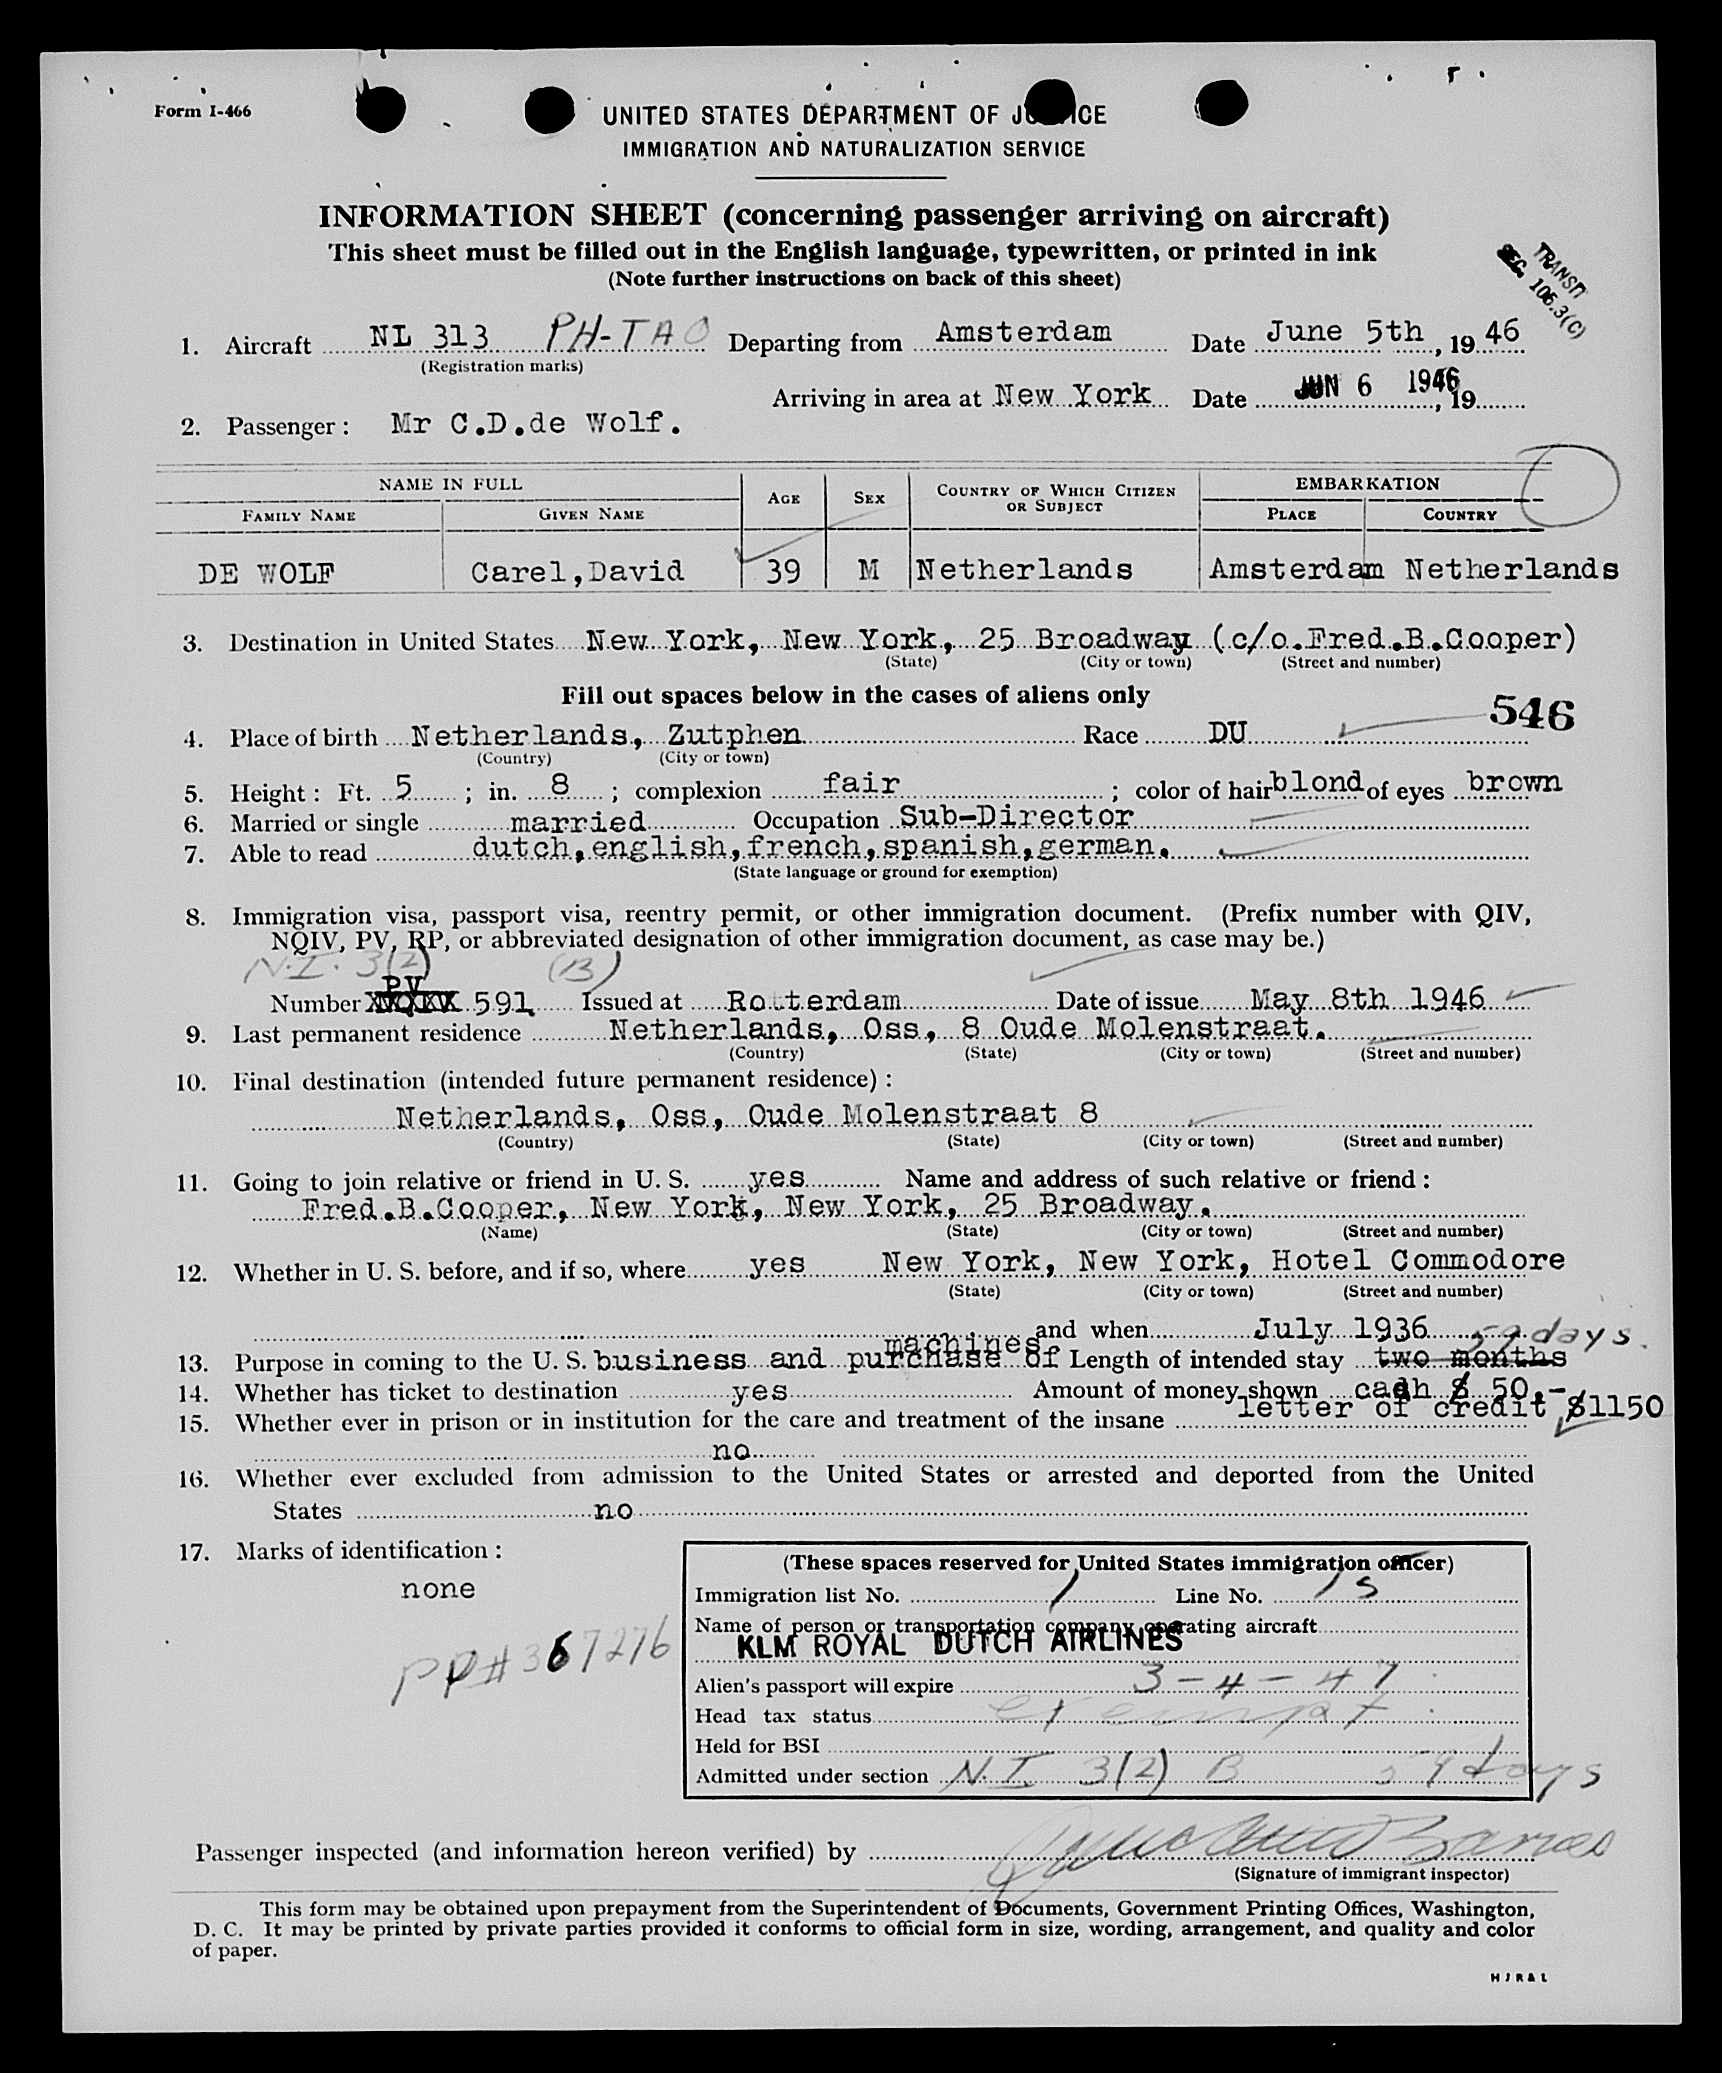 Form I-466
UNITED STATES DEPARTMENT OF JUSTICE
IMMIGRATION AND NATURALIZATION SERVICE
INFORMATION SHEET (concerning passenger arriving on aircraft)
This sheet must be filled out in the English language, typewritten, or printed in ink
(Note further instructions on back of this sheet)
TRANSIT
SEC. 106.3(C)
1. Aircraft NL 313 PH-TAO Departing from Amsterdam Date June 5th, 1946
(Registration marks)
Arriving in area at New York Date JUN 6 1946, 19
2. Passenger: Mr C.D.de Wolf.
NAME IN FULL AGE SEX COUNTRY OF WHICH CITIZEN OR SUBJECT EMBARKATION
FAMILY NAME GIVEN NAME PLACE COUNTRY
DE WOLF Carel,David 39 M Netherlands Amsterdam Netherlands
3. Destination in United States New York, New York, 25 Broadway (c/o.Fred.B.Cooper)
(State) (City or town) (Street and number)
Fill out spaces below in the cases of aliens only
546
4. Place of birth Netherlands, Zutphen Race DU
(Country) (City or town)
5. Height: Ft. 5; in. 8; complexion fair; color of hair blond of eyes brown
6. Married or single married Occupation Sub-Director
7. Able to read dutch,english,french,spanish,german.
(State language or ground for exemption)
8. Immigration visa, passport visa, reentry permit, or other immigration document. (Prefix number with QIV,
NQIV, PV, RP, or abbreviated designation of other immigration document, as case may be.)
N.I. 3(2) (B)
PV
Number 591 Issued at Rotterdam Date of issue May 8th 1946
9. Last permanent residence Netherlands, Oss, 8 Oude Molenstraat.
(Country) (State) (City or town) (Street and number)
10. Final destination (intended future permanent residence):
Netherlands, Oss, Oude Molenstraat 8
(Country) (State) (City or town) (Street and number)
11. Going to join relative or friend in U. S. yes Name and address of such relative or friend:
Fred.B.Cooper, New York, New York, 25 Broadway.
(Name) (State) (City or town) (Street and number)
12. Whether in U. S. before, and if so, where yes New York, New York, Hotel Commodore
(State) (City or town) (Street and number)
and when July 1936 59 days.
machines
13. Purpose in coming to the U. S. business and purchase of Length of intended stay two months
14. Whether has ticket to destination yes Amount of money shown cash $ 50.-
letter of credit $1150
15. Whether ever in prison or in institution for the care and treatment of the insane
no
16. Whether ever excluded from admission to the United States or arrested and deported from the United
States no
17. Marks of identification:
none
PP# 367276
(These spaces reserved for United States immigration officer)
Immigration list No. 1 Line No. 15
Name of person or transportation company operating aircraft
KLM ROYAL DUTCH AIRLINES
Alien's passport will expire 3-4-47
Head tax status exempt
Held for BSI
Admitted under section N.I. 3(2) B 59 days
Passenger inspected (and information hereon verified) by
(Signature of immigrant inspector)
This form may be obtained upon prepayment from the Superintendent of Documents, Government Printing Offices, Washington,
D. C. It may be printed by private parties provided it conforms to official form in size, wording, arrangement, and quality and color
of paper.